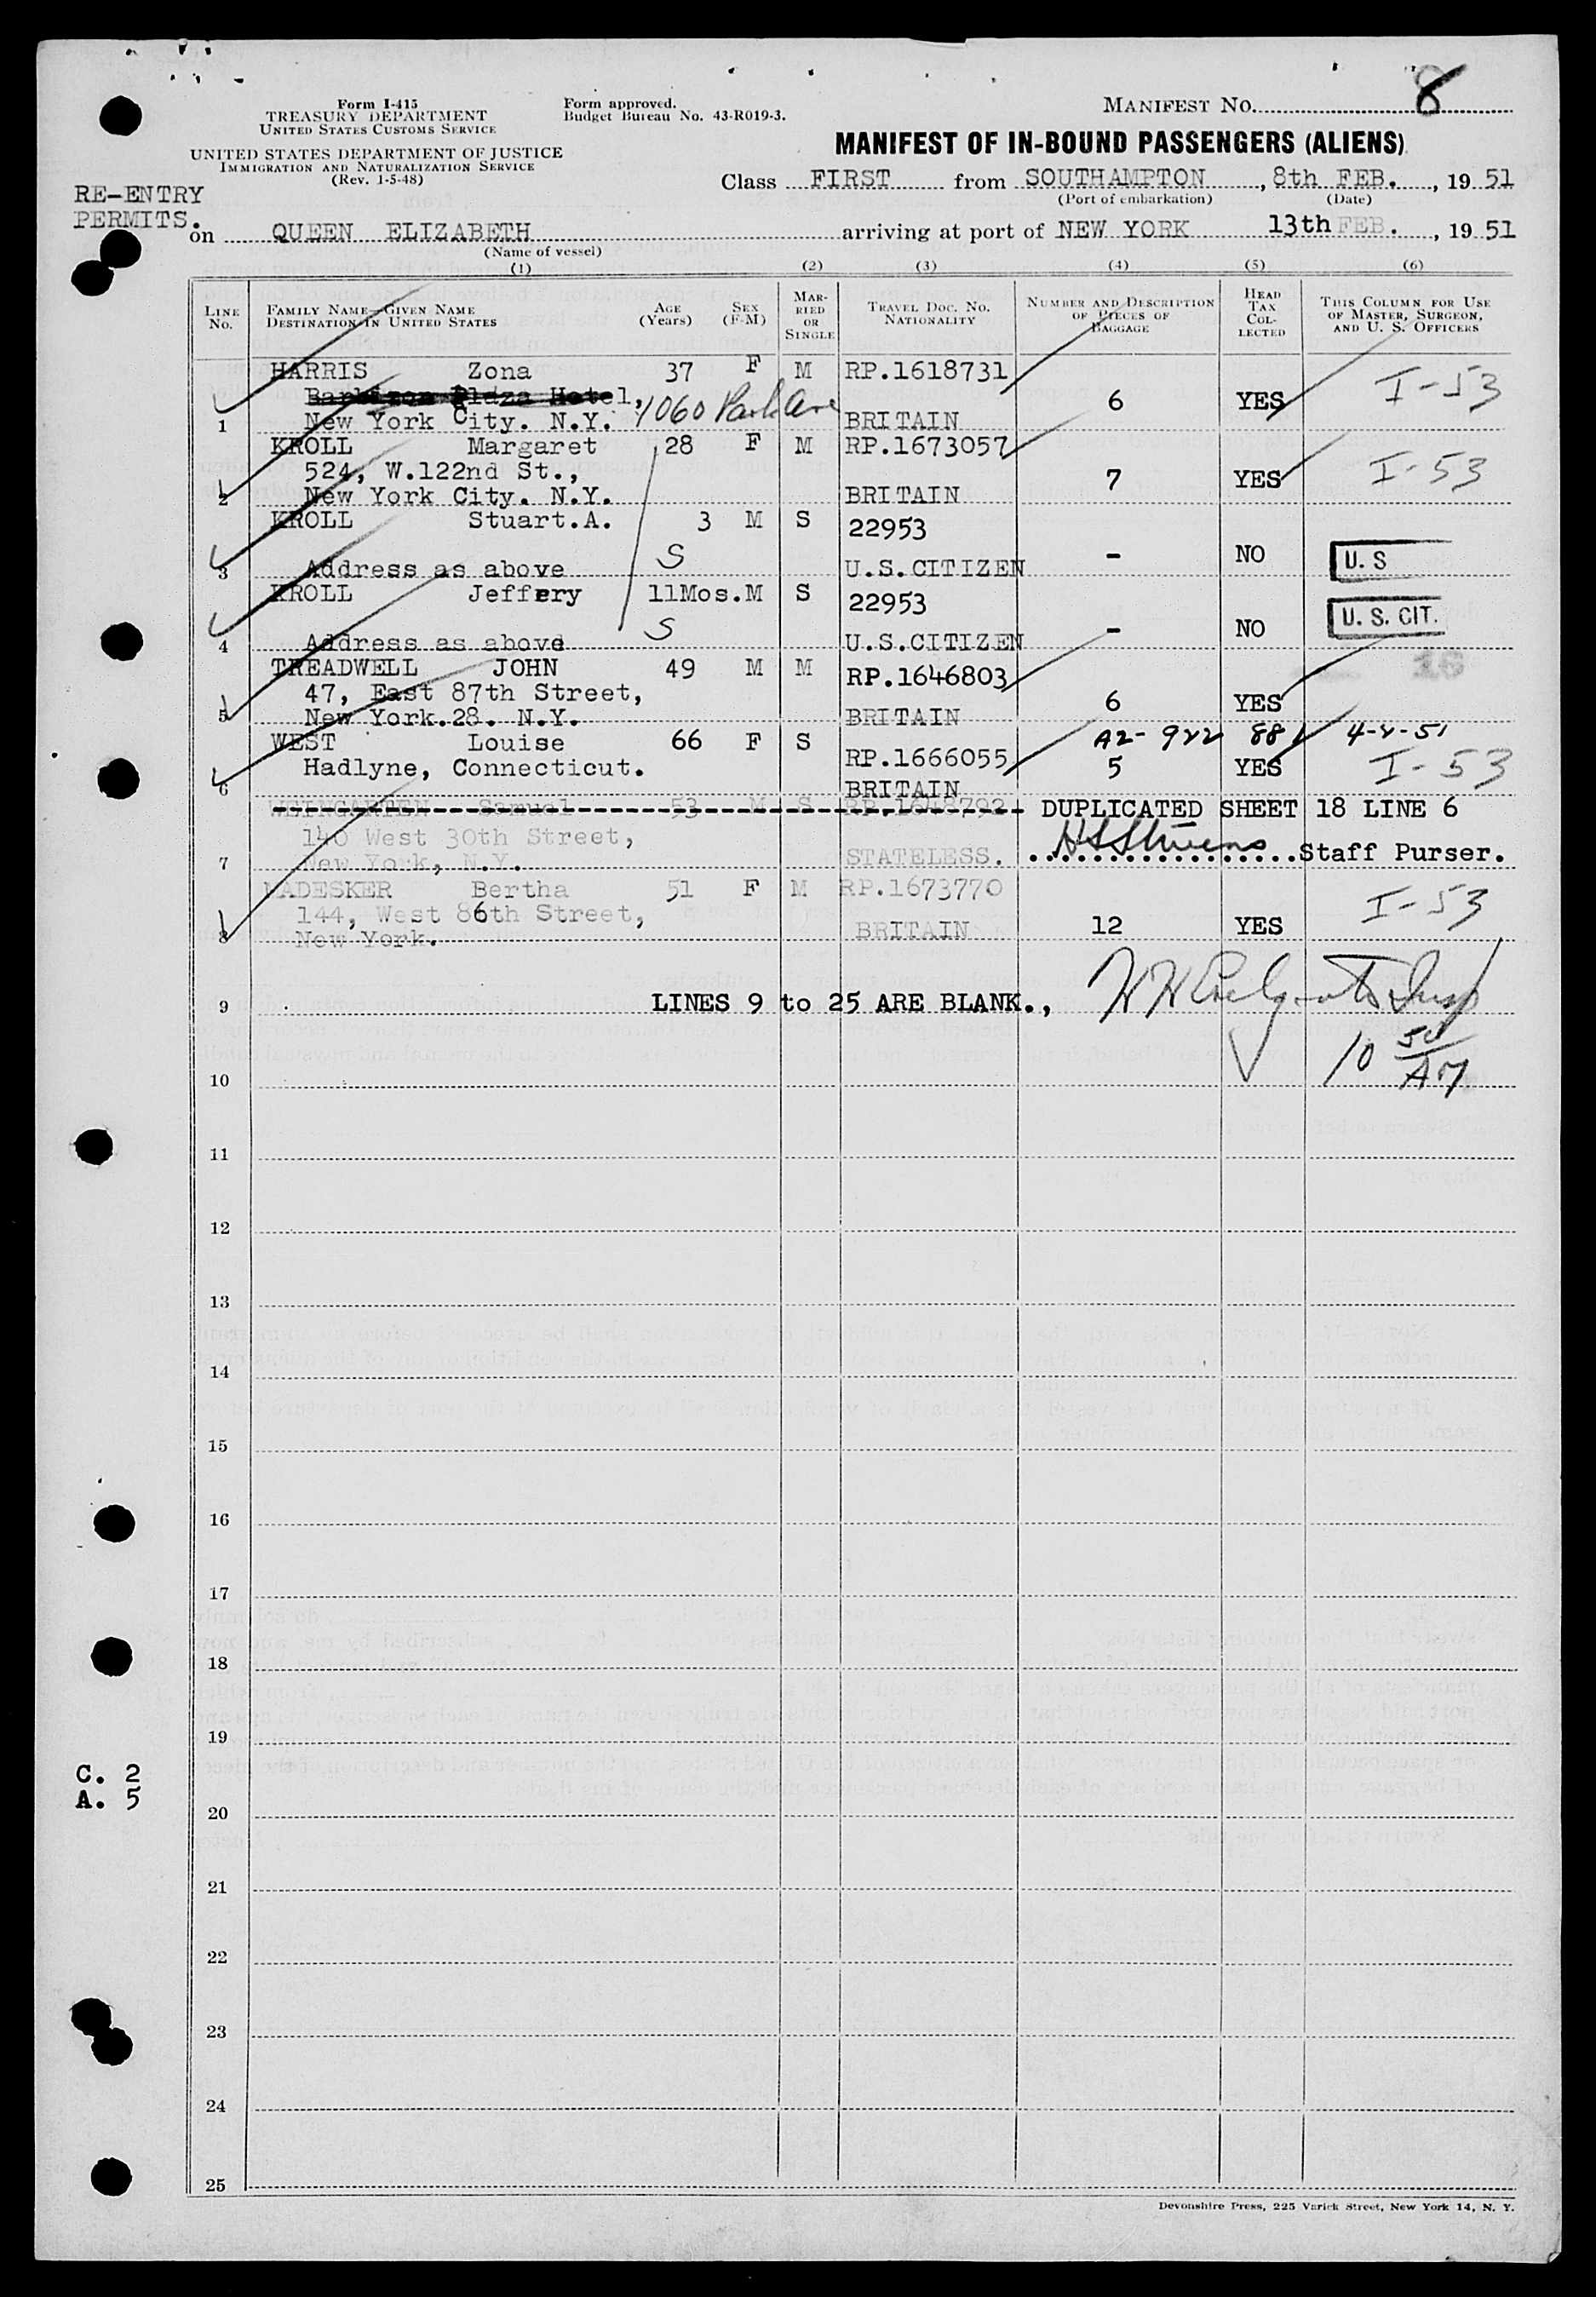 Form I-415
TREASURY DEPARTMENT
UNITED STATES CUSTOMS SERVICE
UNITED STATES DEPARTMENT OF JUSTICE
IMMIGRATION AND NATURALIZATION SERVICE
(Rev. 1-5-48)
Form approved.
Budget Bureau No. 43-R019-3.
MANIFEST NO. 8
MANIFEST OF IN-BOUND PASSENGERS (ALIENS)
RE-ENTRY
PERMITS.
Class FIRST from SOUTHAMPTON, 8th FEB., 19 51
(Port of embarkation) (Date)
on QUEEN ELIZABETH arriving at port of NEW YORK 13th FEB., 19 51
(Name of vessel)
(1) (2) (3) (4) (5) (6)
LINE NO. FAMILY NAME—GIVEN NAME DESTINATION IN UNITED STATES AGE (Years) SEX (F-M) MARRIED OR SINGLE TRAVEL DOC. NO. NATIONALITY NUMBER AND DESCRIPTION OF PIECES OF BAGGAGE HEAD TAX COLLECTED THIS COLUMN FOR USE OF MASTER, SURGEON, AND U. S. OFFICERS
HARRIS Zona 37 F M RP.1618731
Barbizon Plaza Hotel, 1060 Park Ave 6 YES I-53
1 New York City. N.Y. BRITAIN
KROLL Margaret 28 F M RP.1673057
524, W.122nd St., 7 YES I-53
2 New York City. N.Y. BRITAIN
KROLL Stuart.A. 3 M S 22953
S - NO U.S
3 Address as above U.S.CITIZEN
KROLL Jeffery 11Mos. M S 22953
S - NO U. S. CIT.
4 Address as above U.S.CITIZEN
TREADWELL JOHN 49 M M RP.1646803 16
47, East 87th Street, 6 YES
5 New York.28. N.Y. BRITAIN
WEST Louise 66 F S A2-922 881 4-2-51
Hadlyne, Connecticut. RP.1666055 5 YES I-53
6 BRITAIN
WEINGARTEN Samuel 53 M S RP.1648792 DUPLICATED SHEET 18 LINE 6
140 West 30th Street,
7 New York, N.Y. STATELESS. Staff Purser.
LADESKER Bertha 51 F M RP.1673770 I-53
144, West 86th Street, 12 YES
8 New York. BRITAIN
9 LINES 9 to 25 ARE BLANK.,
10 50
10 AM
11
12
13
14
15
16
17
18
19
C. 2
A. 5
20
21
22
23
24
25
Devonshire Press, 225 Varick Street, New York 14, N. Y.